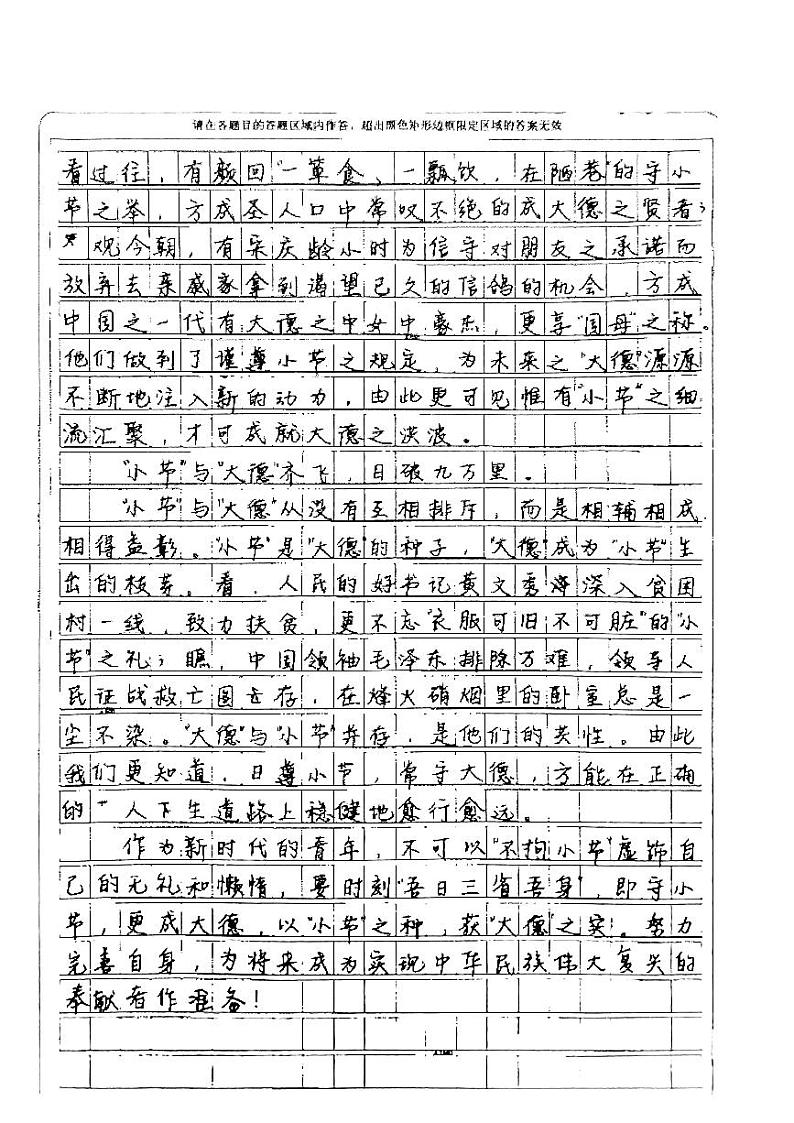 请在各题目的答题区域内作答，超出颜色矩形边框限定区域的答案无效
看过往，有颜回“一箪食、一瓢饮，在陋巷”的守小
节之举，方成圣人口中常叹不绝的成大德之贤者；
观今朝，有宋庆龄小时为信守对朋友之承诺而
放弃去亲戚家拿到渴望已久的信鸽的机会，方成
中国之一代有大德之中女中豪杰，更享“国母”之称。
他们做到了谨遵小节之规定，为未来之“大德”源源
不断地注入新的动力，由此更可见惟有“小节”之细
流汇聚，才可成就大德之洪波。
“小节”与“大德”齐飞，日破九万里。
“小节”与“大德”从没有互相排斥，而是相辅相成，
相得益彰。“小节”是“大德”的种子，“大德”成为“小节”生
出的枝芽。看，人民的好书记黄文秀深入贫困
村一线，致力扶贫，更不忘“衣服可旧不可脏”的“小
节”之礼；瞧，中国领袖毛泽东排除万难，领导人
民征战救亡图存，在烽火硝烟里的卧室总是一
尘不染。“大德”与“小节”并存，是他们的共性。由此
我们更知道，日遵小节，常守大德，方能在正确
的人下生道路上稳健地愈行愈远。
作为新时代的青年，不可以“不拘小节”虚饰自
己的无礼和懒惰，要时刻“吾日三省吾身”，即守小
节，更成大德，以“小节”之种，获“大德”之实。努力
完善自身，为将来成为实现中华民族伟大复兴的
奉献者作准备！